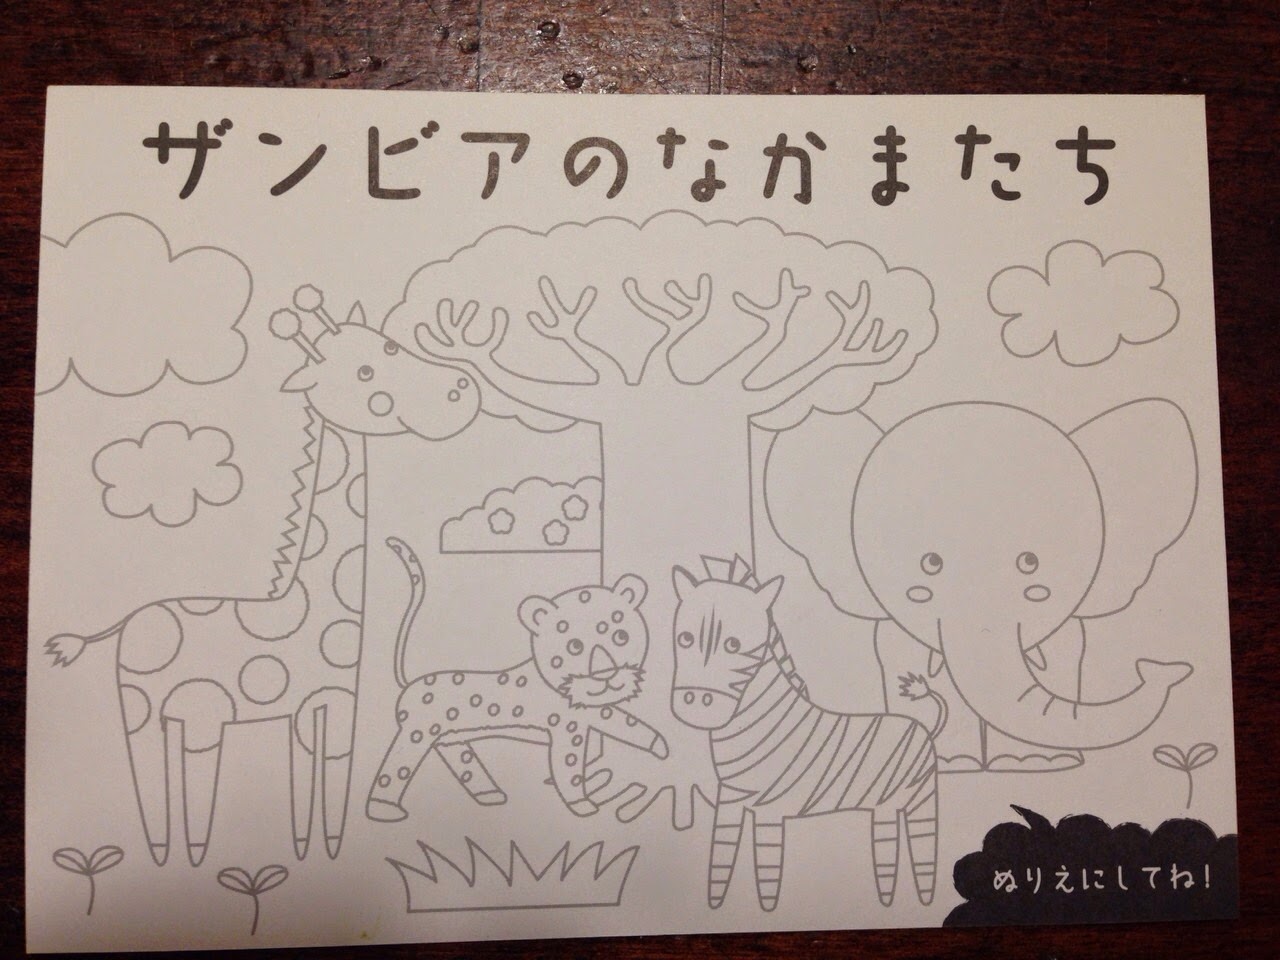 ザンビアのなかまたち
ぬりえにしてね!